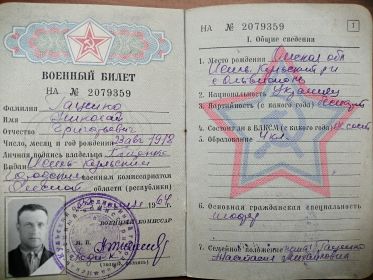 ВОЕННЫЙ БИЛЕТ
НА № 2079359
Фамилия Гащенко
Имя Николай
Отчество Григорьевич
Число, месяц и год рождения 23 авг 1912
Личная подпись владельца
Выдан Исиль Кульским
Городским военным комиссариатом
Омской области (республики)
1964
Военный комиссар
М. П.
НА № 2079359
1
I. Общие сведения
1. Место рождения Омская обл
Исиль Кульский р-н
2. Национальность Украинец
3. Партийность (с какого года)
4. Состоит ли в ВЛКСМ (с какого года) не сост
5. Образование 4 кл.
6. Основная гражданская специальность
7. Семейное положение жена Гащенко